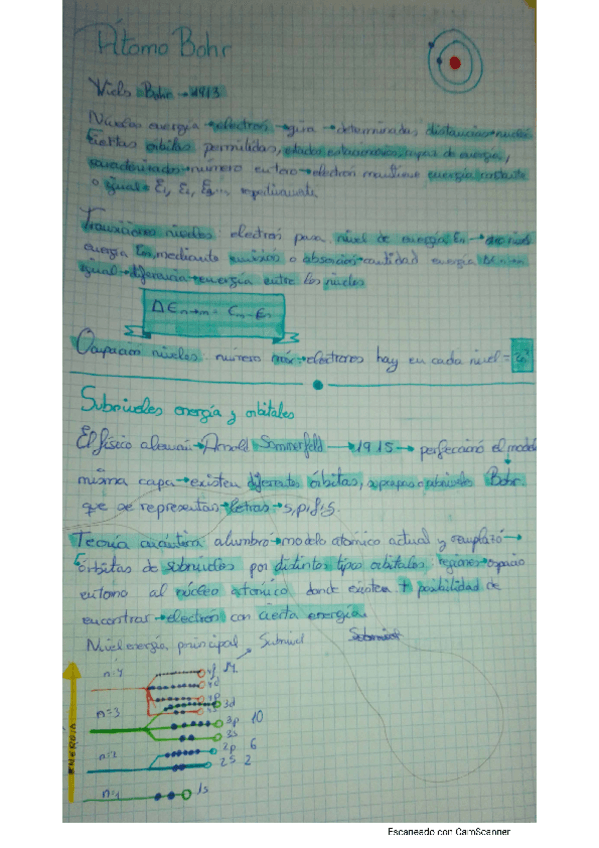 Átomo Bohr
Niels Bohr → 1913
Niveles energía → electrón → gira → determinadas distancias → núcleo
ciertas órbitas permitidas, estados estacionarios, capas de energía,
caracterizadas → número entero → electrón mantiene energía constante
o igual = E1, E2,
Transiciones niveles: electrón pasa nivel de energía En → otro nivel
energía Em, mediante emisión o absorción → cantidad energía ΔEn→m
igual → diferencia → energía entre los niveles
ΔEn→m = Em - En
Ocupación niveles: número máx → electrones hay en cada nivel =
Subniveles energía y orbitales
El físico alemán → Arnold Sommerfeld → 1915 → perfeccionó el modelo
misma capa → existen diferentes órbitas, subniveles Bohr
que se representan → letras → s, p,
Teoría cuántica alumbro → modelo atómico actual y remplazó →
órbitas de subniveles por distintos tipo orbitales: regiones → espacio
entorno al núcleo atómico donde existen + posibilidad de
encontrar → electrón con cierta energía.
Nivel energía, principal Subnivel Subnivel
n=4 4f 14
4d
4p
n=3 4s 3d
3p 10
3s
n=2 2p 6
2s 2
n=1 1s
ENERGIA
Escaneado con CamScanner